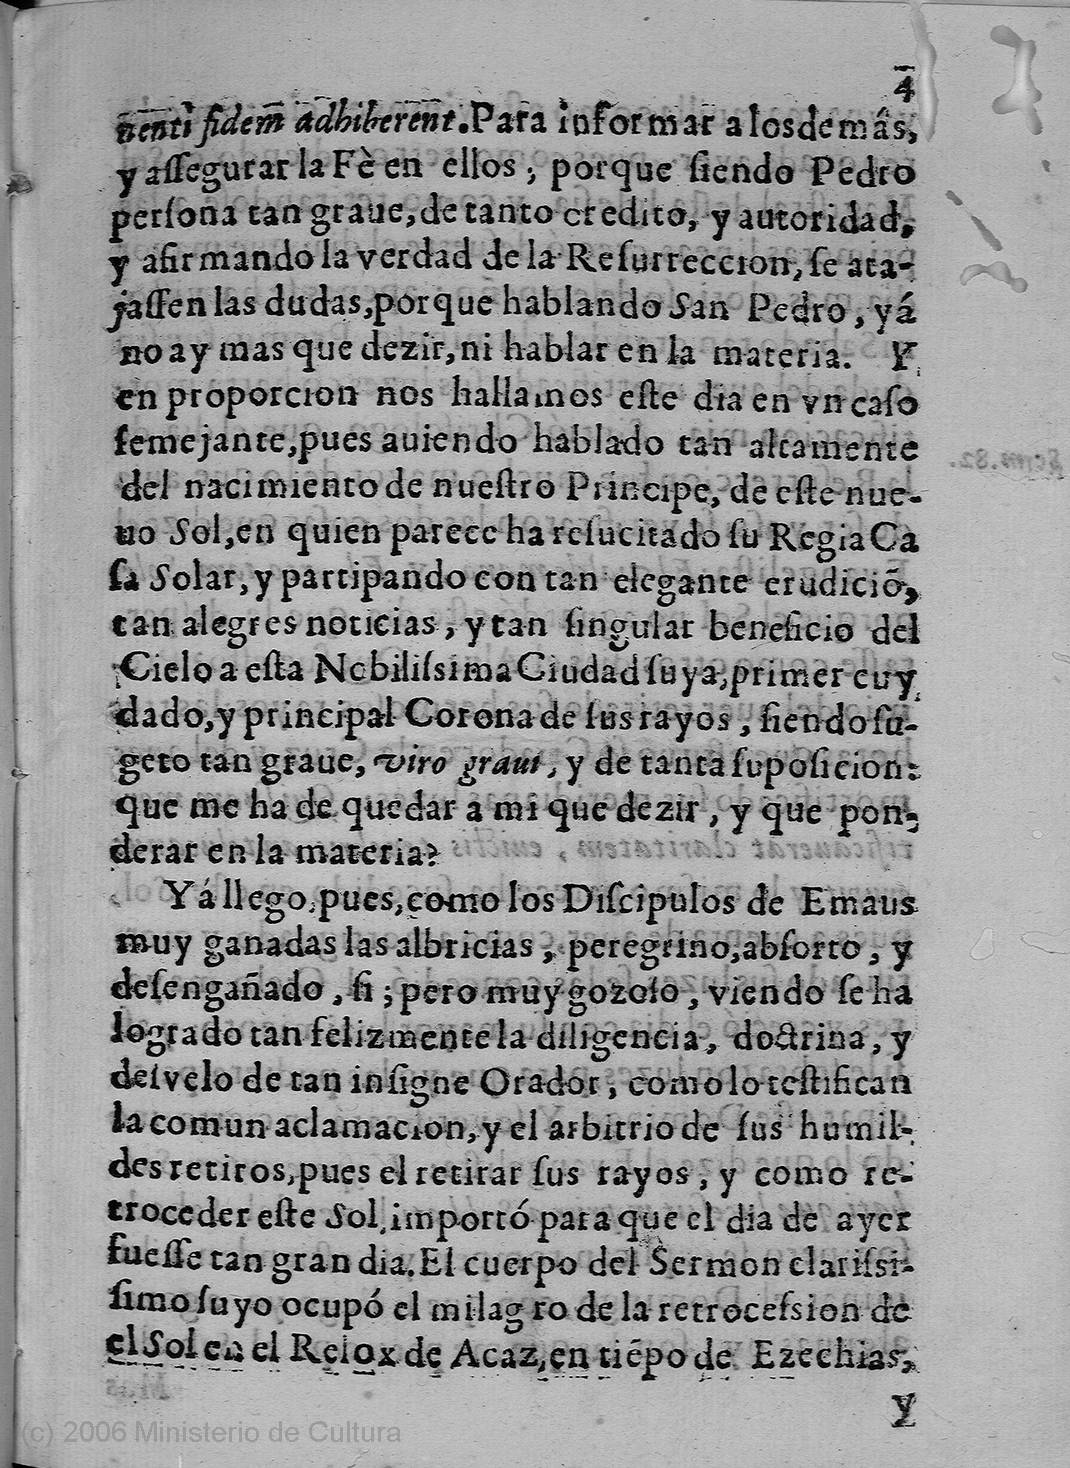 4
nenti fidem̄ adhiberent. Para informar a los demâs,
y assegurar la Fè en ellos; porque siendo Pedro
persona tan graue, de tanto credito, y autoridad,
y afirmando la verdad de la Resurreccion, se ata-
jassen las dudas, porque hablando San Pedro, yá
no ay mas que dezir, ni hablar en la materia. Y
en proporcion nos hallamos este dia en vn caso
semejante, pues auiendo hablado tan altamente
del nacimiento de nuestro Principe, de este nue-
uo Sol, en quien parece ha resucitado su Regia Ca
sa Solar, y partipando con tan elegante erudiciõ,
tan alegres noticias, y tan singular beneficio del
Cielo a esta Nobilissima Ciudad suya, primer cuy
dado, y principal Corona de sus rayos, siendo su-
geto tan graue, viro graui, y de tanta suposicion:
que me ha de quedar a mi que dezir, y que pon-
derar en la materia?
Yá llego, pues, como los Discipulos de Emaus
muy ganadas las albricias, peregrino, absorto, y
desengañado, si; pero muy gozoso, viendo se ha
logrado tan felizmente la diligencia, doctrina, y
desvelo de tan insigne Orador, como lo testifican
la comun aclamacion, y el arbitrio de sus humil-
des retiros, pues el retirar sus rayos, y como re-
troceder este Sol, importó para que el dia de ayer
fuesse tan gran dia. El cuerpo del Sermon clarissi-
simo suyo ocupó el milagro de la retrocession de
el Sol en el Relox de Acaz, en tiẽpo de Ezechias,
y
(c) 2006 Ministerio de Cultura